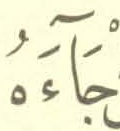 جَآءَهُ